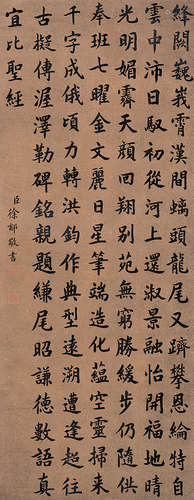 絳闕巍峩霄漢間螭頭龍尾又躋攀恩綸特自
雲中沛日馭初從河上還淑景融怡開福地晴
光明媚霽天顔回翔别苑無窮勝緩步仍隨供
奉班七曜金文麗日星筆端造化蘊空靈掃来
千字成俄頃力轉洪鈞作典型遠溯遭逢超往
古擬傳渥澤勒碑銘親題縑尾昭謙德數語真
宜比聖經
臣徐郙敬書